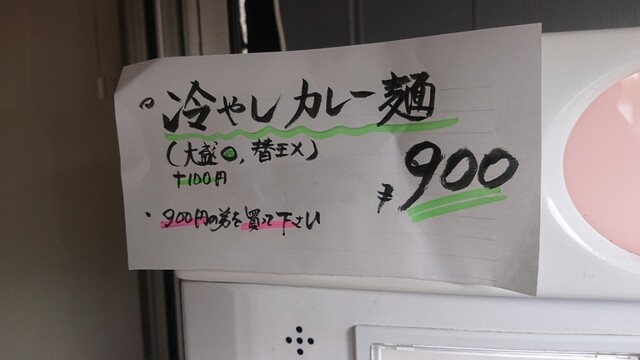 冷やしカレー麺
(大盛○, 替玉×)
+100円
¥900
・900円の券を買って下さい